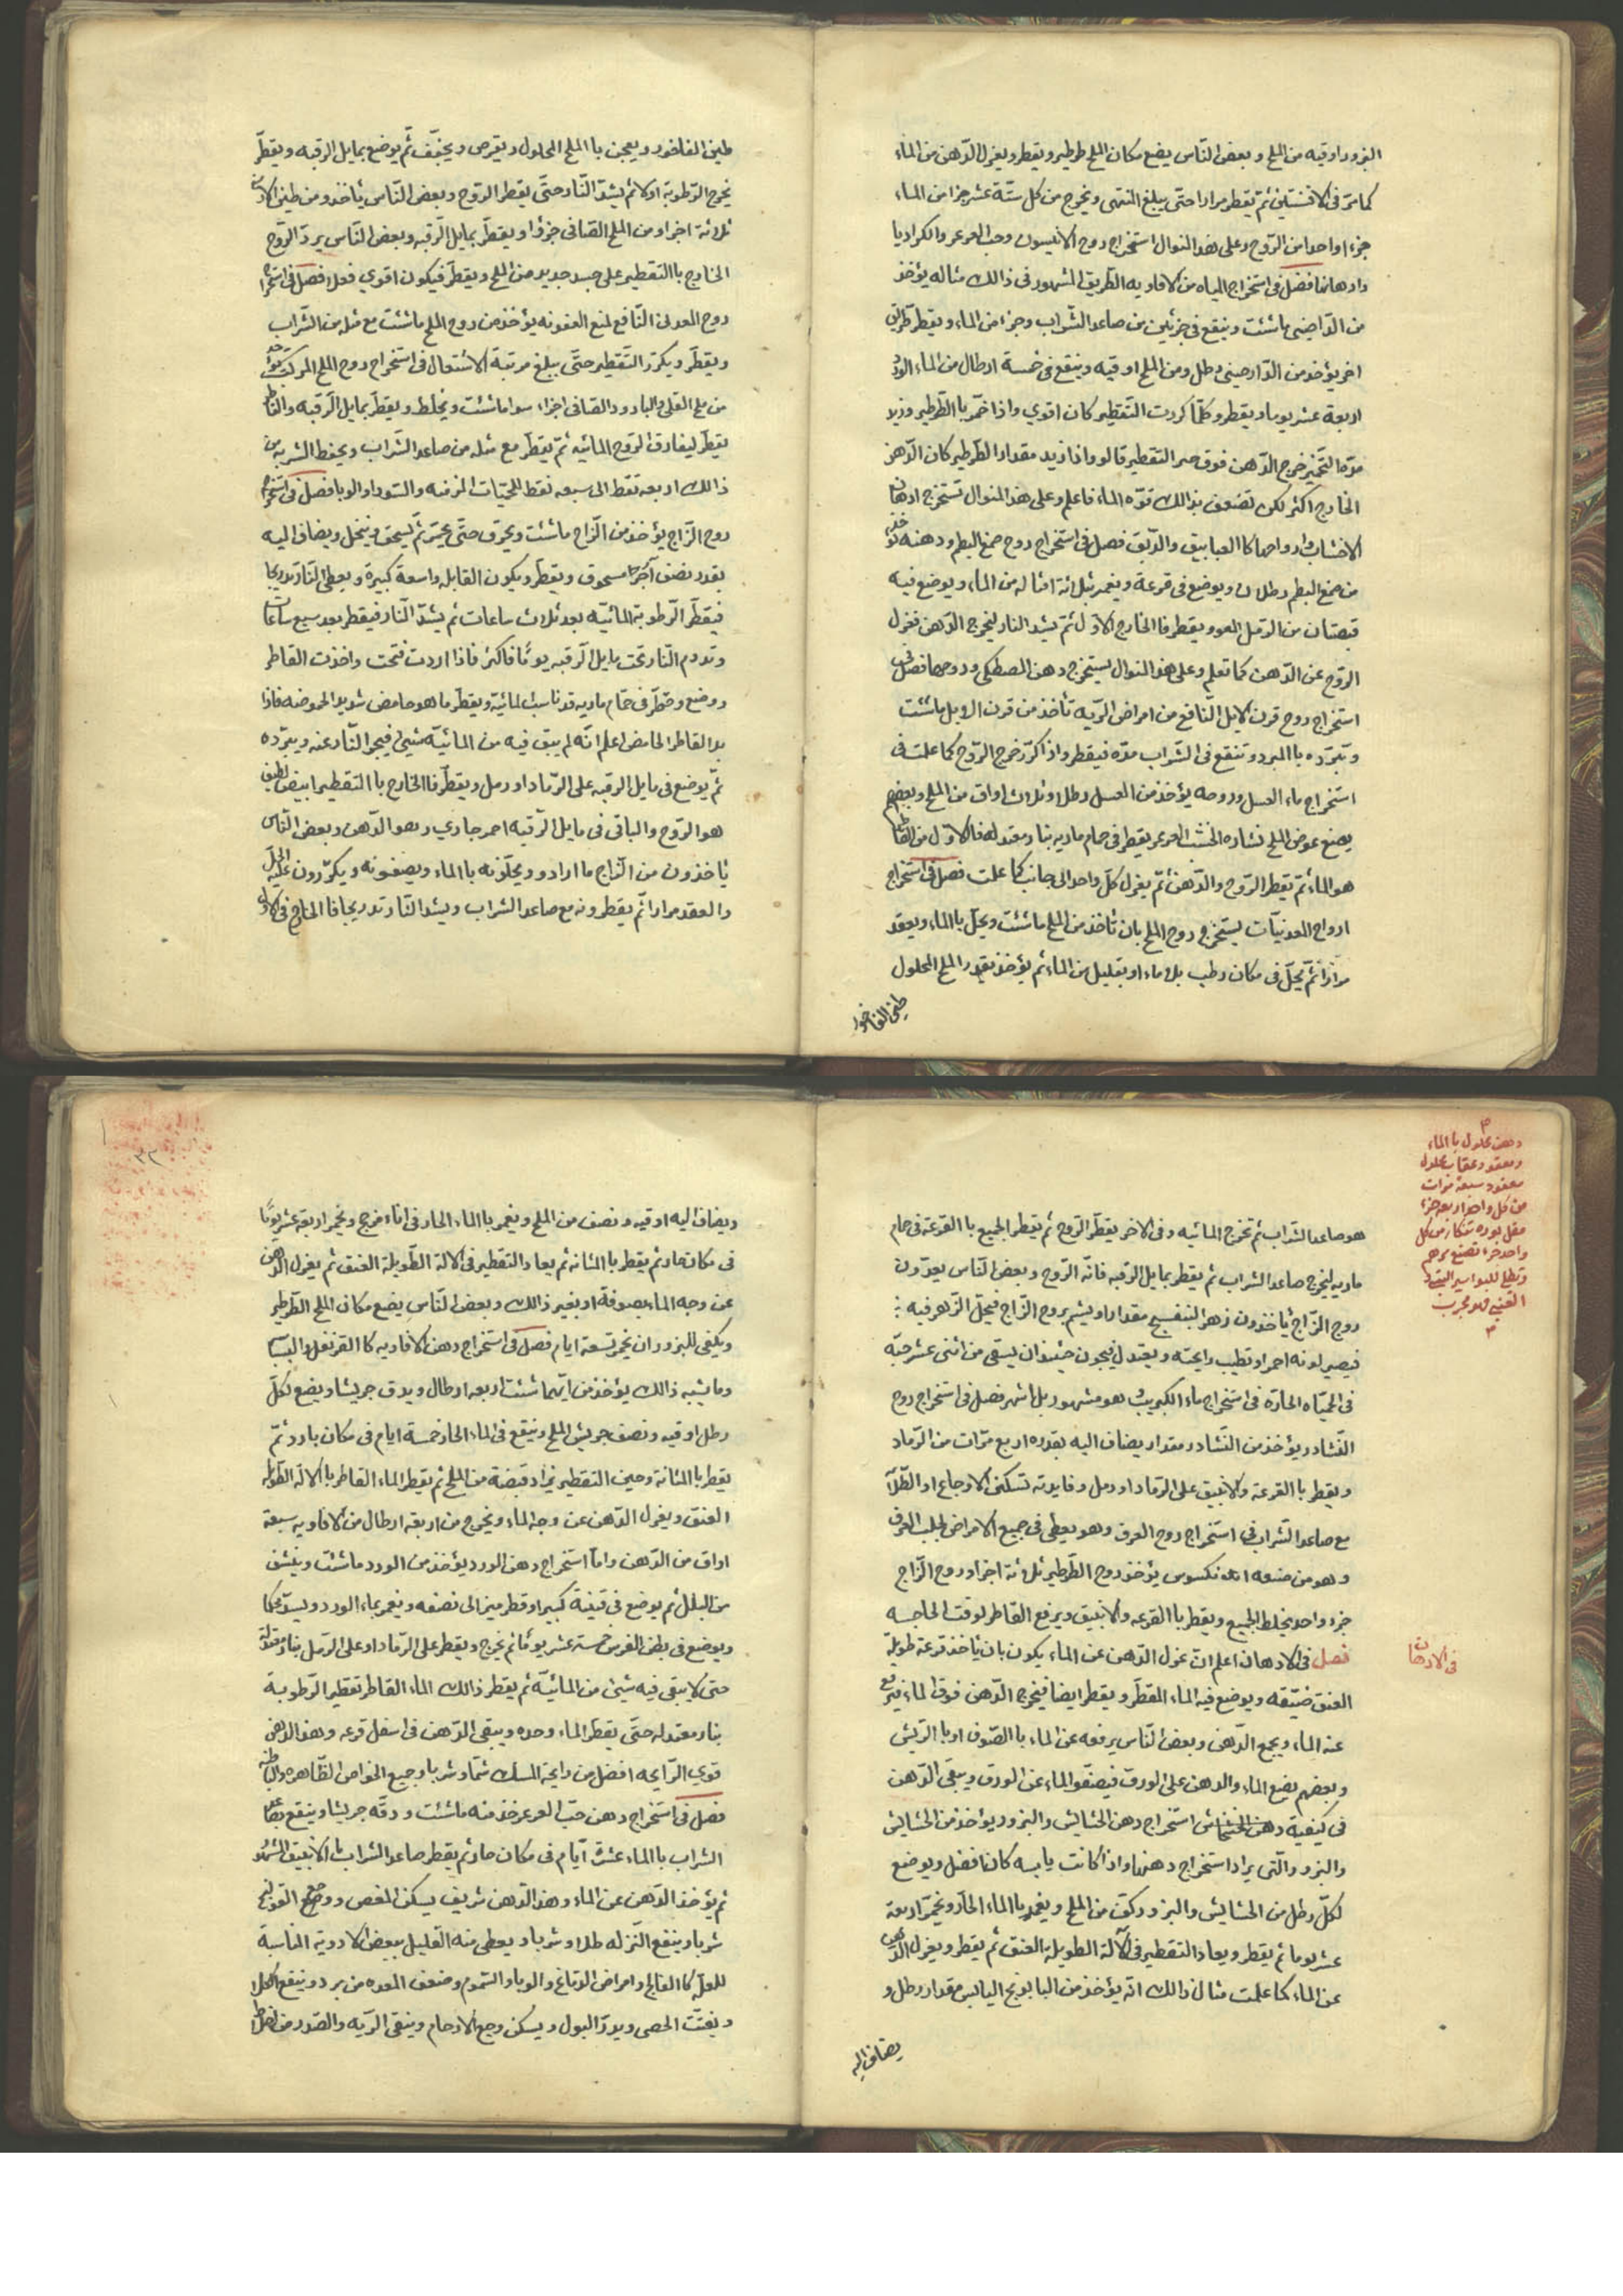 البزور اوقيه من الملح وبعض النّاس يضع مكان الملح طرطير ويقطر ويغرل الدّهن من الماء
كما مرّ فى الافسنتين ثمّ يقطر مرارا حتّى يبلغ المنتهى ويخرج من كل ستّة عشر جزا من الماء
جزءا واحدا من الرّوح وعلى هذا المنوال استخراج روح الانيسون وحب العرعر والكراديا
وادهانها فصل فى استخراج المياه من الافاويه الطّريق المشهور فى ذالك مثاله يؤخذ
من الدّارصينى ما شئت وينقع فى جزئين من صاعد الشّراب وجزء من الماء ويقطر طريق
اخر يؤخذ من الدّارصينى رطل ومن الملح اوقيه وينقع فى خمسة ارطال من الماء الورد
اربعة عشر يوما ويقطر وكلّما كررت التّقطير كان اقوي واذا خمّر باالطّرطير وزيد
مدّة التّخمير خرج الدّهن فوق صبر التّقطير قالو واذا زيد مقدار الطّرطير كان الدّهن
الخارج اكثر لكن تضعف بذالك قوّه الماء فاعلم وعلى هذا المنوال تستخرج ادهان
الاخشاب وارواحها كا العبابيق والدّبق فصل فى استخراج روح صمغ البطم ودهنه يؤخذ
من صمغ البطم رطلان ويوضع فى قرعة ويغمر بثلاثة امثاله من الماء ويوضع فيه
قبضتان من الرّمل المعوو يقطر فا الخارج الاوّل ثمّ يشد النار ليخرج الدّهن فغرل
الرّوح عن الدّهن كما تعلم وعلى هذا المنوال يستخرج دهن المصطكى وروحها فصل فى
استخراج روح قرن الايل النّافع من امراض الرّيه تأخذ من قرن الايل ما شئت
وتبرّده باالمبرد وتنقع فى الشّراب مدّه فيقطر واذا كرّر خرج الرّوح كما علمت فى
استخراج ماء العسل وروحه يؤخذ من العسل رطلا وثلاث اواق من الملح وبعضهم
يضع عوض الملح نشاره الخشب العرعر يقطر فى حمام ماريه بنار معتدله فا الاوّل من القاطر
هو الماء ثمّ يقطر الرّوح والدّهن ثمّ يغرل كلّ واحد الى جانب كما علمت فصل فى استخراج
ارواح المعدنيّات يستخرج روح الملح بان تأخذ من الملح ما شئت ويحلّ باالماء ويعقد
مرارا ثمّ يحلّ فى مكان رطب بلا ماء او بقليل من الماء ثم يؤخذ بقدر الملح المحلول
طين الفاخور
طين الفاخور ويعجن باالملح المحلول ويقرص ويجفّف ثمّ يوضع بمايل الرقبه ويقطّر
يخرج الرّطوبة اولا ثم يشدّ النّار حتّى يقطر الرّوح وبعض النّاس يأخذ ومن طين الارمن
ثلاثة اجزاء ومن الملح الصّافى جزؤا ويقطّر بمايل الرّقبه وبعض النّاس يردّ الرّوح
الخارج باالتقطير على جسد جديد من الملح ويقطّر فيكون اقوي فعلا فصل فى استخراج
روح المعدنى النّافع لمنع العفونه يؤخذ من روح الملح ما شئت مع مثله من الشّراب
ويقطّر ويكرّر التّقطير حتّى يبلغ مرتبة الاشتعال فى استخراج روح الملح المركّب يؤخذ
من ملح القلى والبارود الصّافى اجزاء سوا ما شئت ويخلط ويقطّر بمايل الرّقبه والقاطر
يقطّر ليفارق الرّوح المائيه ثمّ يقطّر مع مثله من صاعد الشّراب ويحفظ الشربه من
ذالك اربعه نقط الى سبعه نقط للحيّات المزمنه والسّودا والوبا فصل فى استخراج
روح الزّاج يؤخذ من الزّاج ما شئت ويحرق حتّى يحمرّ ثمّ يسحق وينخل ويضاف اليه
بقدر نصف آجر مسحوق ويقطّر ويكون القابله واسعة كبيرة ويعطى النّار تدريجا
فيقطّر الرّطوبة المائيّه بعد ثلاث ساعات ثم يشدّ النّار فيقطر بعد سبع ساعات
وتدوم النّار تحت مايل الرّقبه يومًا فاكثر فاذا اردت فتحت واخذت القاطر
ووضع وقطّر فى حمّام ماريه قد ناسب المائيّة ويقطّر ما هو حامض شديد الحموضه فاذا
بدا القاطر الحامض اعلم انّه لم يبق فيه من المائيّة شيئ فيجرّ النّار عنه ويبرّده
ثمّ يوضع فى مايل الرقبه على الرّماد او رمل ويقطّر فا الخارج باالتقطير ابيض لطيف
هو الرّوح والباقى فى مايل الرّقبه احمر جاري وهو الدّهن وبعض النّاس
يأخذون من الزّاج ما ارادو ويحلّونه باالماء ويصفونه ويكرّرون عليه الحلّ
والعقد مرارا ثمّ يقطرونه مع صاعد الشراب ويشد النّار تدريجا فا الخارج فى الاوّل
دهن محلول باالماء
ومعقود عقاب محلول
معقود سبعة مرات
من كل واحد اربعه جزء
مقل بوره تنكار من كل
واحد جزء تصنع مرهم
وتطلع للبواسير
القنى وهو مجرب
هو صاعد الشّراب ثم تخرج المائيّه وفى الاخر يقطّر الرّوح ثم يقطر الجميع باالقرعة فى حمام
ماريه ليخرج صاعد الشراب ثم يقطر بمايل الرقبه فانّه الرّوح وبعض النّاس يعدّون
روح الزّاج يأخذون زهر البنفسج مقدارا ويشم بروح الزّاج فيحلّ الزّهر فيه
فيصير لونه احمر اوتطيب رايحته ويعتدل فيجون حينئذ ان يسقى من اثنى عشر حبّه
فى الحيّاه الحارّه فى استخراج ماء الكبريت وهو مشهور بل اشهر فصل فى استخراج روح
النّشادر يؤخذ من النّشادر مقدار يضاف اليه بقدره اربع مرّات من الرّماد
ويقطر باالقرعة والانبيق على الرّماد او رمل وفايدته تسكن الاوجاع او الطّلا
مع صاعد الشّراب فى استخراج روح العرق وهو يعطى فى جميع الامراض لجلب العرق
وهو من صنعه يؤخذ روح الطّرطير ثلاثة اجزا وروح الزّاج
جزء واحد يخلط الجميع ويقطر باالقرعه والانبيق ويرفع القاطر لوقت الحاجه
فصل فى الادهان اعلم انّ غرل الدّهن عن الماء يكون بان يأخذ قرعة طويلة
فى الادهان
العنق ضيّقه ويوضع فيه الماء المقطّر ويقطر ايضا فيخرج الدّهن فوق الماء فيرفع
عنه الماء ويجمع الدّهن وبعض النّاس يرفعه عن الماء باالصّوف او باالرّيش
وبعضهم يضع الماء والدهن على الورق فيصفّو الماء عن الورق ويبقى الدّهن
فى كيفية دهن الخشخاش استخراج دهن الحشايش والبزور يؤخذ من الحشايش
والبزور والّتى يراد استخراج دهنها واذا كانت يابسه كان افضل ويوضع
لكلّ رطل من الحشايش والبزور ركفّ من الملح ويغمر باالماء الحارّ ويخمّر اربعة
عشر يوما ثم يقطر ويعاد التقطير فى آلآلة الطويلة العنق ثم يقطر ويغرل الدّهن
عن الماء كما علمت مثال ذالك انّه يؤخذ من البابونج اليابس مقدار رطل و
يضاف اليه
٣٢
ويضاف اليه اوقيه ونصف من الملح ويغمر باالماء الحار فى اناء مزجج ويخمر اربعة عشر يومًا
فى مكان حار ثم يقطر باالمثانه ثم يعاد التقطير فى الالة الطّويلة العنق ثم يغرل الدّهن
عن وجه الماء بصوفة او بغير ذالك وبعض النّاس يضع مكان الملح الطّرطير
ويكفى للبزور ان يخمر تسعة ايام فصل فى استخراج دهن الافاويه كا القرنفل والبسباسه
وما يشبه ذالك يؤخذ من ايّهما شئت اربعه ارطال ويدق جريشا ويضع لكلّ
رطل اوقيه ونصف جريش الملح وينقع فى الماء الحار خمسة ايام فى مكان بارد ثمّ
يقطر باالمثانة وحين التقطير يزاد قبضة من الملح ثم يقطر الماء القاطر باالالة الطّويلة
العنق ويغرل الدّهن عن وجه الماء ويخرج من اربعه ارطال من الافاويه سبعة
اواق من الدّهن وامّا استخراج دهن الورد يؤخذ من الورد ما شئت وينشف
من البلل ثم يوضع فى قنينة كبيرا وقطرميز الى نصفه ويغمر بماء الورد ويسدّ محكما
ويوضع فى بطن الفرس خمسة عشر يومًا ثم يخرج ويقطر على الرّماد او على الرّمل بنار معتدلة
حتى لا يبقى فيه شيئ من المائيّه ثم يقطر ذالك الماء القاطر تقطير الرّطوبة
بنار معتدله حتّى يقطر الماء وحده ويبقى الدّهن فى اسفل قرعه وهذا الدهن
قوي الرّايحه افضل من رايحة المسك شمّا وشربا وجميع الخواص الظّاهره والباطنه
فصل فى استخراج دهن حبّ العرعر خذ منه ما شئت ودقّه جريشا وينقع بصاعد
الشراب باالماء عشرة ايّام فى مكان حار ثم يقطر صاعد الشراب باالانبيق المشهور
ثم يؤخذ الدّهن عن الماء وهذا الدّهن شريف يسكن المغص ووجع القولنج
شربا وينفع النّزله طلاء وشربا ويعطى منه القليل ببعض الادوية المناسبة
للعلّه كا الفالج وامراض الدّماغ والوبا والسّموم وضعف المعده من برد وينفع الكلا
ويفتّت الحصى ويدرّ البول ويسكن وجع الارحام وينقى الرّيه والصّدر من اخلاط